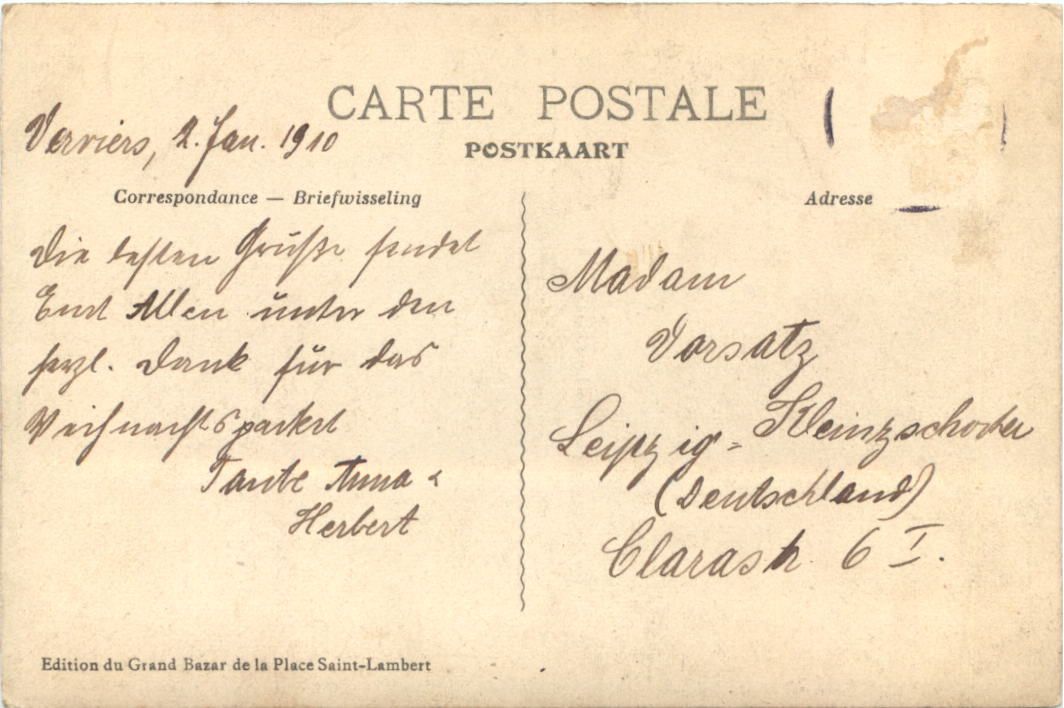 CARTE POSTALE
POSTKAART
Verviers, 2. Jan. 1910
Correspondance — Briefwisseling
Adresse
Die besten Grüße sendet
Euch Allen unter den
herzl. Dank für das
Weihnachtspacket
Tante Anna &
Herbert
Madam
Vorsatz
Leipzig = Kleinzschocher
(Deutschland)
Clarastr. 6 I.
Edition du Grand Bazar de la Place Saint-Lambert